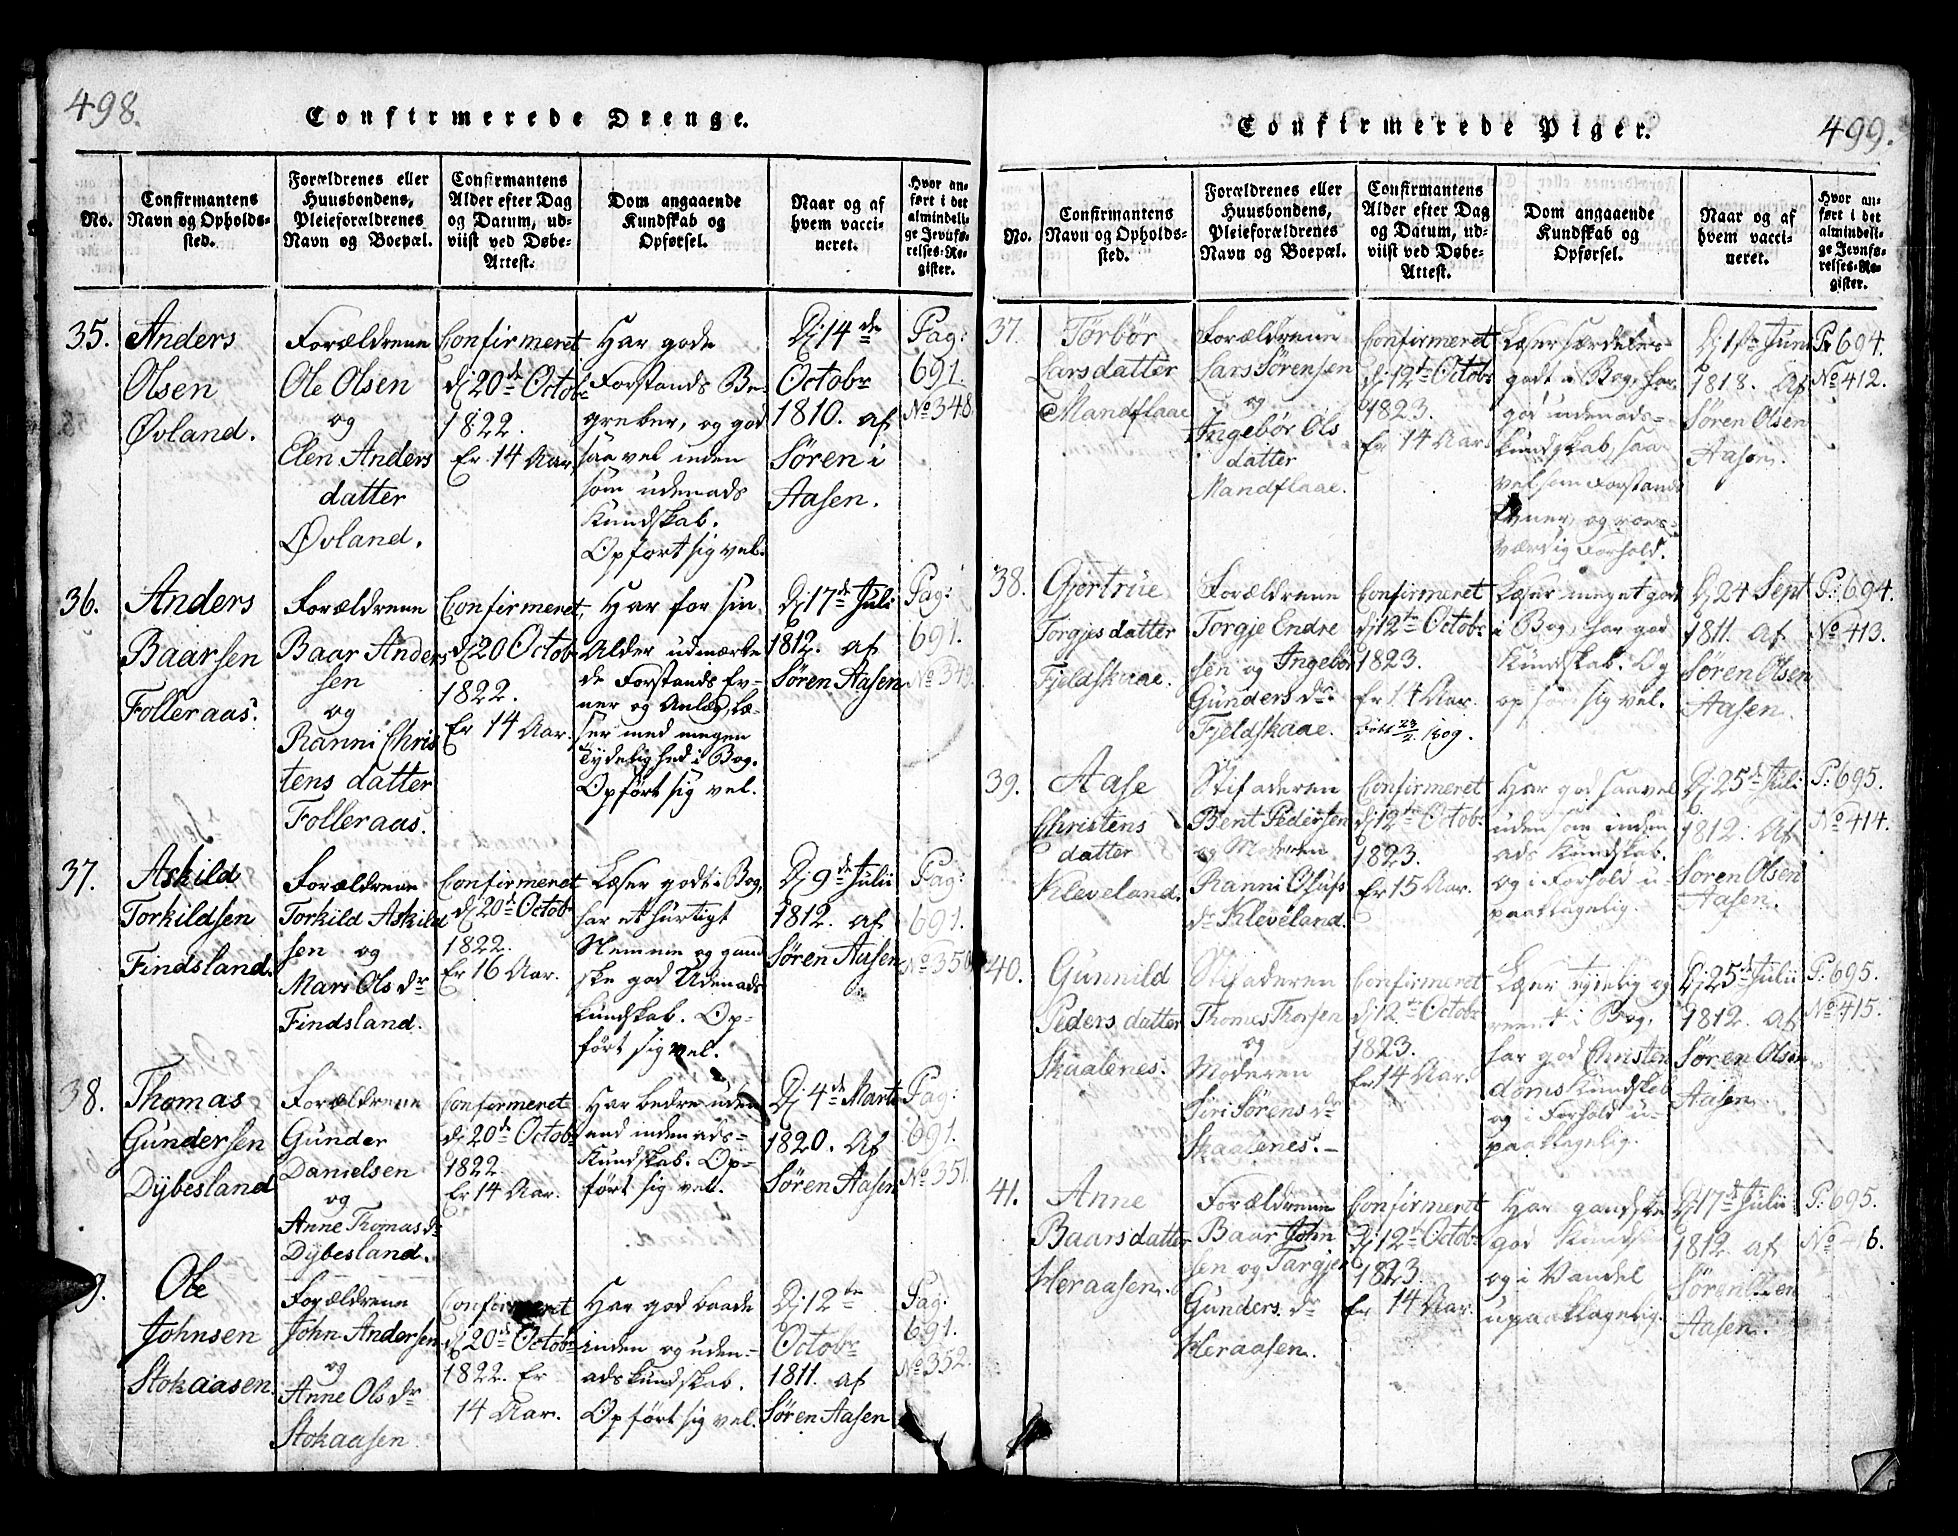 498.
Confirmerede Drenge.
No.
Confirmantens
Navn og Opholds-
sted.
Forældrenes eller
Huusbondens,
Pleieforældrenes
Navn og Boepæl.
Confirmantens
Alder efter Dag
og Datum, ud-
viist ved Døbe-
Attest.
Dom angaaende
Kundskab og
Opførsel.
Naar og af
hvem vacci-
neret.
Hvor an-
ført i det
almindeli-
ge Jevnfø-
relses-Re-
gister.
35.
Anders
Olsen
Øvland.
Forældrene
Ole Olsen
og
Elen Anders
datter
Øvland.
Confirmeret
Dj 20de Octobr
1822.
Er 14 Aar.
Har gode
Forstands Be-
greber, og god
saa vel inden
som udenads
Kundskab.
Opført sig vel.
Dj 14de
Octobr
1810. af
Søren i
Aasen.
Pag:
691.
No 348.
36.
Anders
Baarsen
Folleraas.
Forældrene
Baar Anders
sen
og
Ranni Chris
tens datter
Folleraas.
Confirmeret
Dj 20 Octob
1822.
Er 14 Aar.
Har for sin
Alder udmærke
de Forstands Ev-
ner og Anlæg, læ-
ser med megen
Tydelighed i Bog.
Opført sig vel.
Dj 17de Juli
1812. af
Søren Aasen
Pag:
691.
No 349.
37.
Askild
Torkildsen
Findsland.
Forældrene
Torkild Askild
sen og
Mari Ols dr
Findsland.
Confirmeret
dj 20de Octob
1822.
Er 16 Aar.
Læser godt i Bog,
har et hurtigt
Nemme og gand
ske god Udenads
kundskab. Op-
ført sig vel.
Dj 9de Julii
1812. af
Søren Aasen
Pag:
691.
No 350
38.
Thomas
Gundersen
Dÿbesland
Forældrene
Gunder
Danielsen
og
Anne Thomas dr
Dÿbesland.
Confirmeret
dj 20de Octobr
1822.
Er 14 Aar.
Har bedre uden
end indenads-
Kundskab. Op-
ført sig vel.
Dj 4de Marts
1820. Af
Søren Aasen
Pag:
691.
No 351.
9.
Ole
Johnsen
Stokaasen.
Forældrene
John Andersen
og
Anne Ols dr
Stokaasen
Confirmeret
dj 20de Octobr
1822. Er
14 Aar.
Har god baade
inden og uden-
ads kundskab.
Opført sig vel.
Dj 12te
Octobr
1811. af
Søren Aasen
Pag:
691.
No 352.
Confirmerede Piger.
499.
No.
Confirmantens
Navn og Opholds-
sted.
Forældrenes eller
Huusbondens,
Pleieforældrenes
Navn og Boepæl.
Confirmantens
Alder efter Dag
og Datum, ud-
viist ved Døbe-
Attest.
Dom angaaende
Kundskab og
Opførsel.
Naar og af
hvem vacci-
neret.
Hvor an-
ført i det
almindeli-
ge Jevnfø-
relses-Re-
gister.
37.
Tørbør
Larsdatter
Mandflaae
Forældrene
Lars Sørensen
og
Ingebør Ols
datter
Mandflaae.
Confirmeret
dj 12te Octobr
1823.
Er 14 Aar.
Læser særdeles
godt i Bog, har
god udenads-
kundskab, saa
vel som Forstands
Evner, og roes-
værdig Forhold.
Dj 1ste Juni
1818. Af
Søren Olsen
Aasen.
P: 694.
No 412.
38.
Gjertrue
Torgjes datter
Fjeldskaae.
Forældrene
Torgje Endre
sen og Ingebør
Gunders dr
Fjeldskaae.
Confirmeret
dj 12te Octobr
1823.
Er 14 Aar.
1809.
Læser meget godt
i Bog, har god
Kundskab. Og
opført sig vel.
Dj 24 Sept
1811. af
Søren Olsen
Aasen.
P: 694.
No 413.
39.
Aase
Christens
datter
Kleveland.
Stifaderen
Bent Pedersen
og Moderen
Ranni Olufs
dr Kleveland.
Confirmeret
dj 12te Octobr
1823.
Er 15 Aar.
Har god saavel
uden som inden
ads Kundskab.
og i Forhold u-
paaklagelig.
Dj 25de Juli
1812. Af
Søren Olsen
Aasen.
P: 695.
No 414.
40.
Gunnild
Peders datter
Skaalenes.
Stifaderen
Thomas Thorsen
og
Moderen
Siri Sørens dr
Skaalenes. –
Confirmeret
dj 12te Octobr
1823.
Er 14 Aar.
Læser tydelig og
reent i Bog,
har god Christen
doms Kundskab
og i Forhold u-
paaklagelig.
Dj 25de Julii
1812. af
Søren Olsen
Aasen.
P: 695.
No 415.
41.
Anne
Baarsdatter
Heraasen.
Forældrene
Baar John
sen og Targjer
Gunders dr
Heraasen.
Confirmeret
Dj 12te Octobr
1823.
Er 14 Aar.
Har gandske
god
og i Vandel
upaaklagelig.
Dj 17de Julii
1812. af
Søren Olsen
Aasen.
P: 695.
No 416.